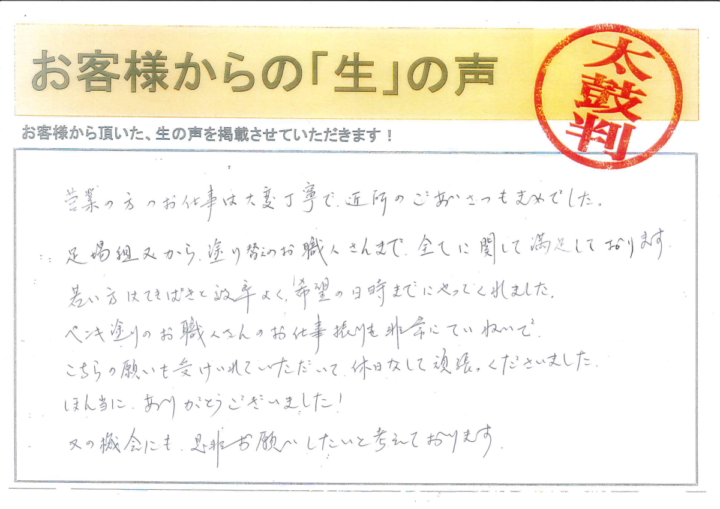 お客様からの「生」の声
太鼓判
お客様から頂いた、生の声を掲載させていただきます！
営業の方のお仕事は大変丁寧で、近所のごあいさつもまめでした。
足場組又から、塗り替えのお職人さんまで、全てに関して満足しております。
若い方はてきぱきと効率よく、希望の日時までにやってくれました。
ペンキ塗りのお職人さんのお仕事振りも非常にていねいで、
こちらの願いも受けいれていただいて、休日なしで頑張ってくださいました。
ほん当に、ありがとうございました！
又の機会にも、是非お願いしたいと考えております。